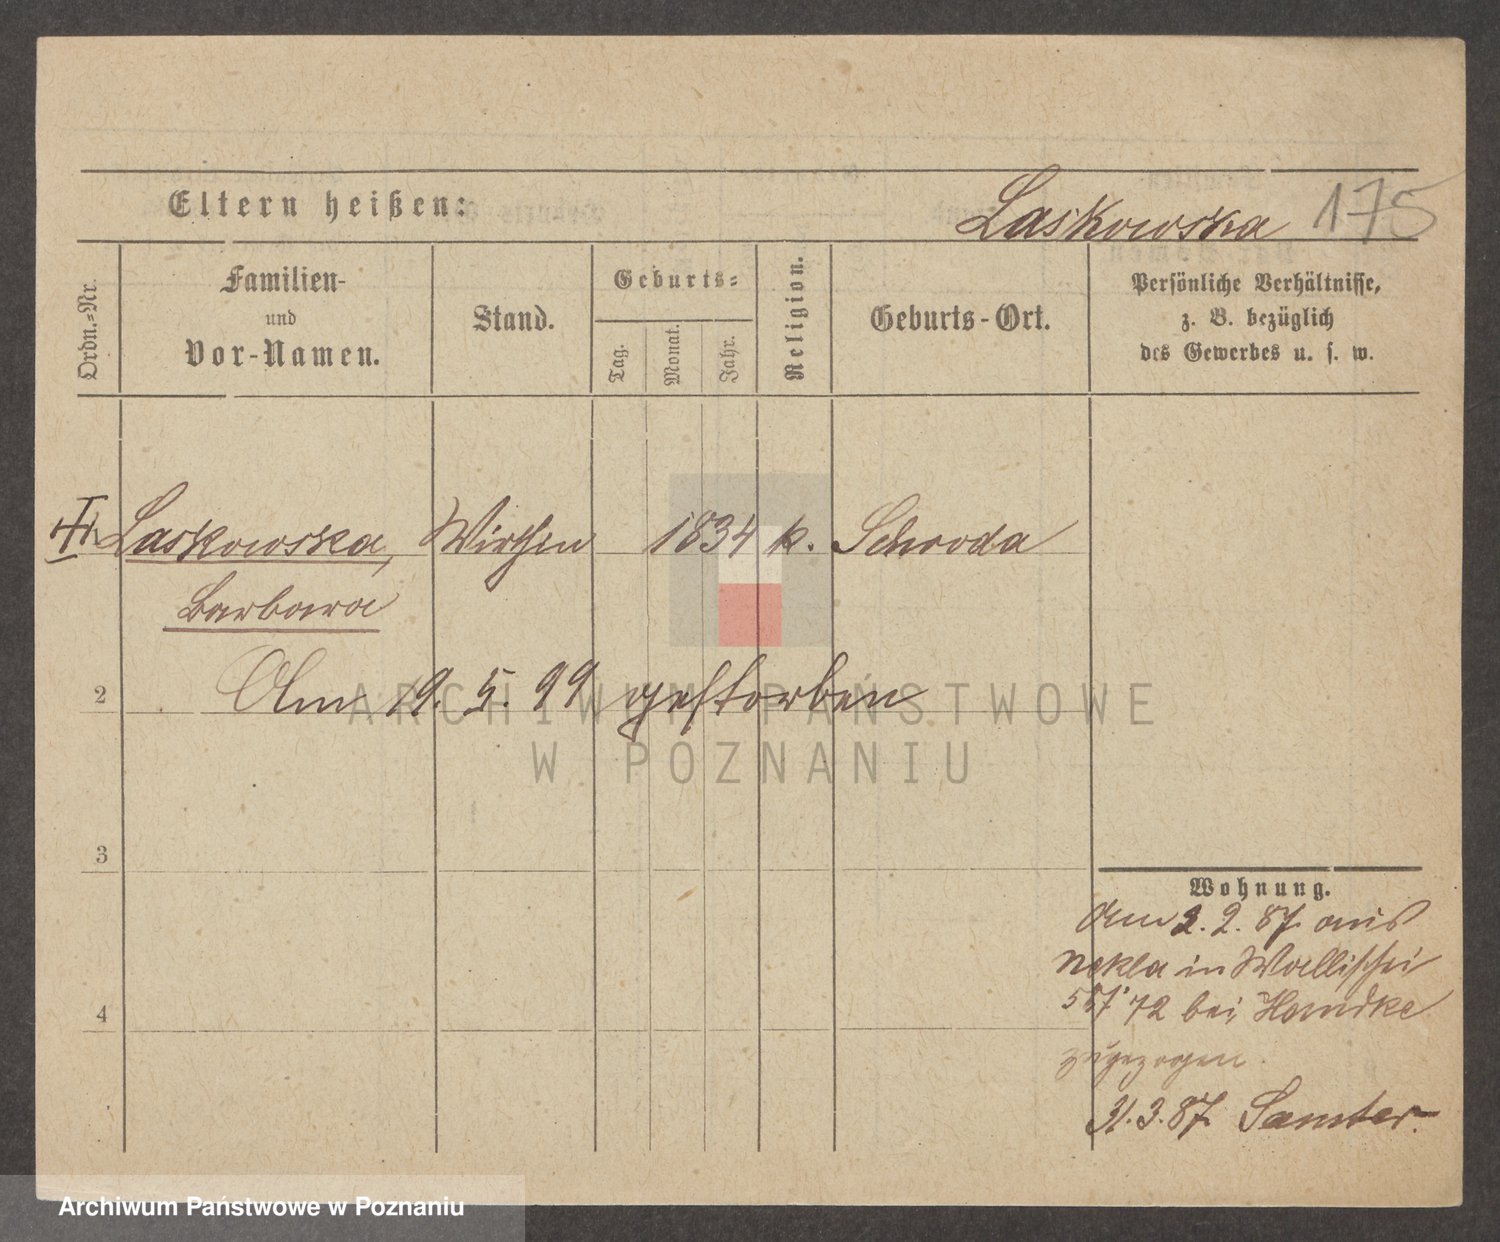 Eltern heißen:
Laskowska 175
Ordn.=Nr.
Familien-
und
Vor-Namen.
Stand.
Geburts=
Tag.
Monat.
Jahr.
Religion.
Geburts-Ort.
Persönliche Verhältnisse,
z. B. bezüglich
des Gewerbes u. s. w.
Laskowska, Wirthin 1834 k. Schroda
Barbara
2
Am 19. 5. 99 gestorben
ARCHIWUM PAŃSTWOWE
W POZNANIU
3
Wohnung.
Am 2. 2. 87 aus
Nekla in Wallischei
72 bei Handke
4
zugezogen.
31.3.87 Samter.
Archiwum Państwowe w Poznaniu